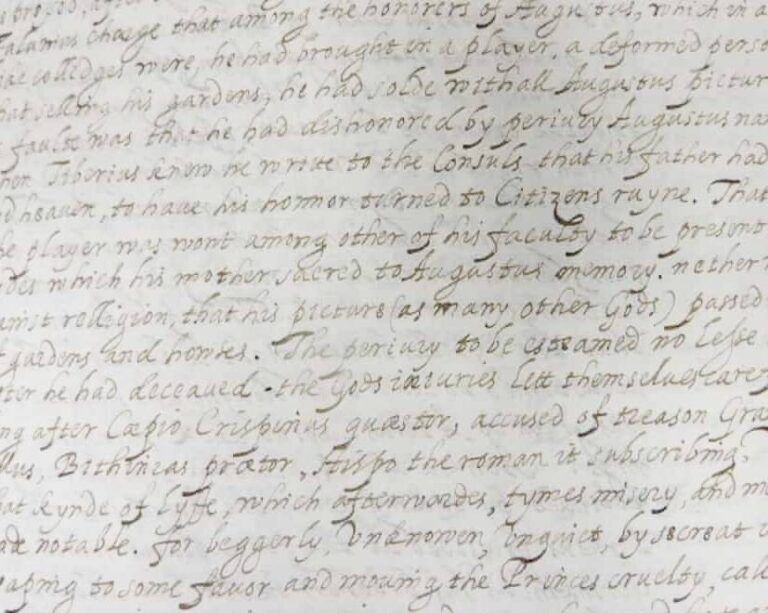 Falanius charge that among the honorers of Augustus, which in a
colledges were, he had brought in a player, a deformed perso
hat selling his gardens, he had solde withall Augustus pictur
faulte was that he had dishonored by periury Augustus na
hen Tiberius knew he wrote to the Consuls that his father had
d heaven, to have his honnor turned to Citizens ruyne. That
he player was wont among other of his faculty to be present
des which his mother sacred to Augustus memory. nether
ainst relligion, that his picture (as many other Gods) passed
gardens and howses. The periury to be esteamed no lesse
ter he had deceaved the Gods iniuries lett themselves care
ng after Cæpio Crispinus quæstor, accused of treason Gra
llus, Bithinias prætor, Hispo the roman it subscribing,
at kynde of lyffe, which afterwardes, tymes misery, and m
ade notable. for beggerly, unknowen, unquiet, by secreat
eaping to some favor and moving the Princes cruelty, cal